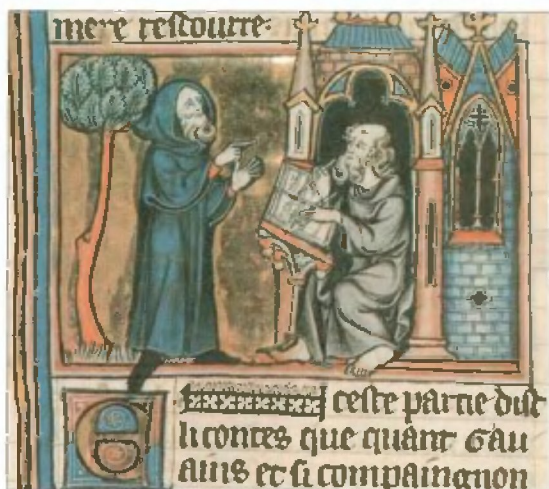 mere rescourre.
E ceste partie dist
li contes que quant Gau
et si compaingnon